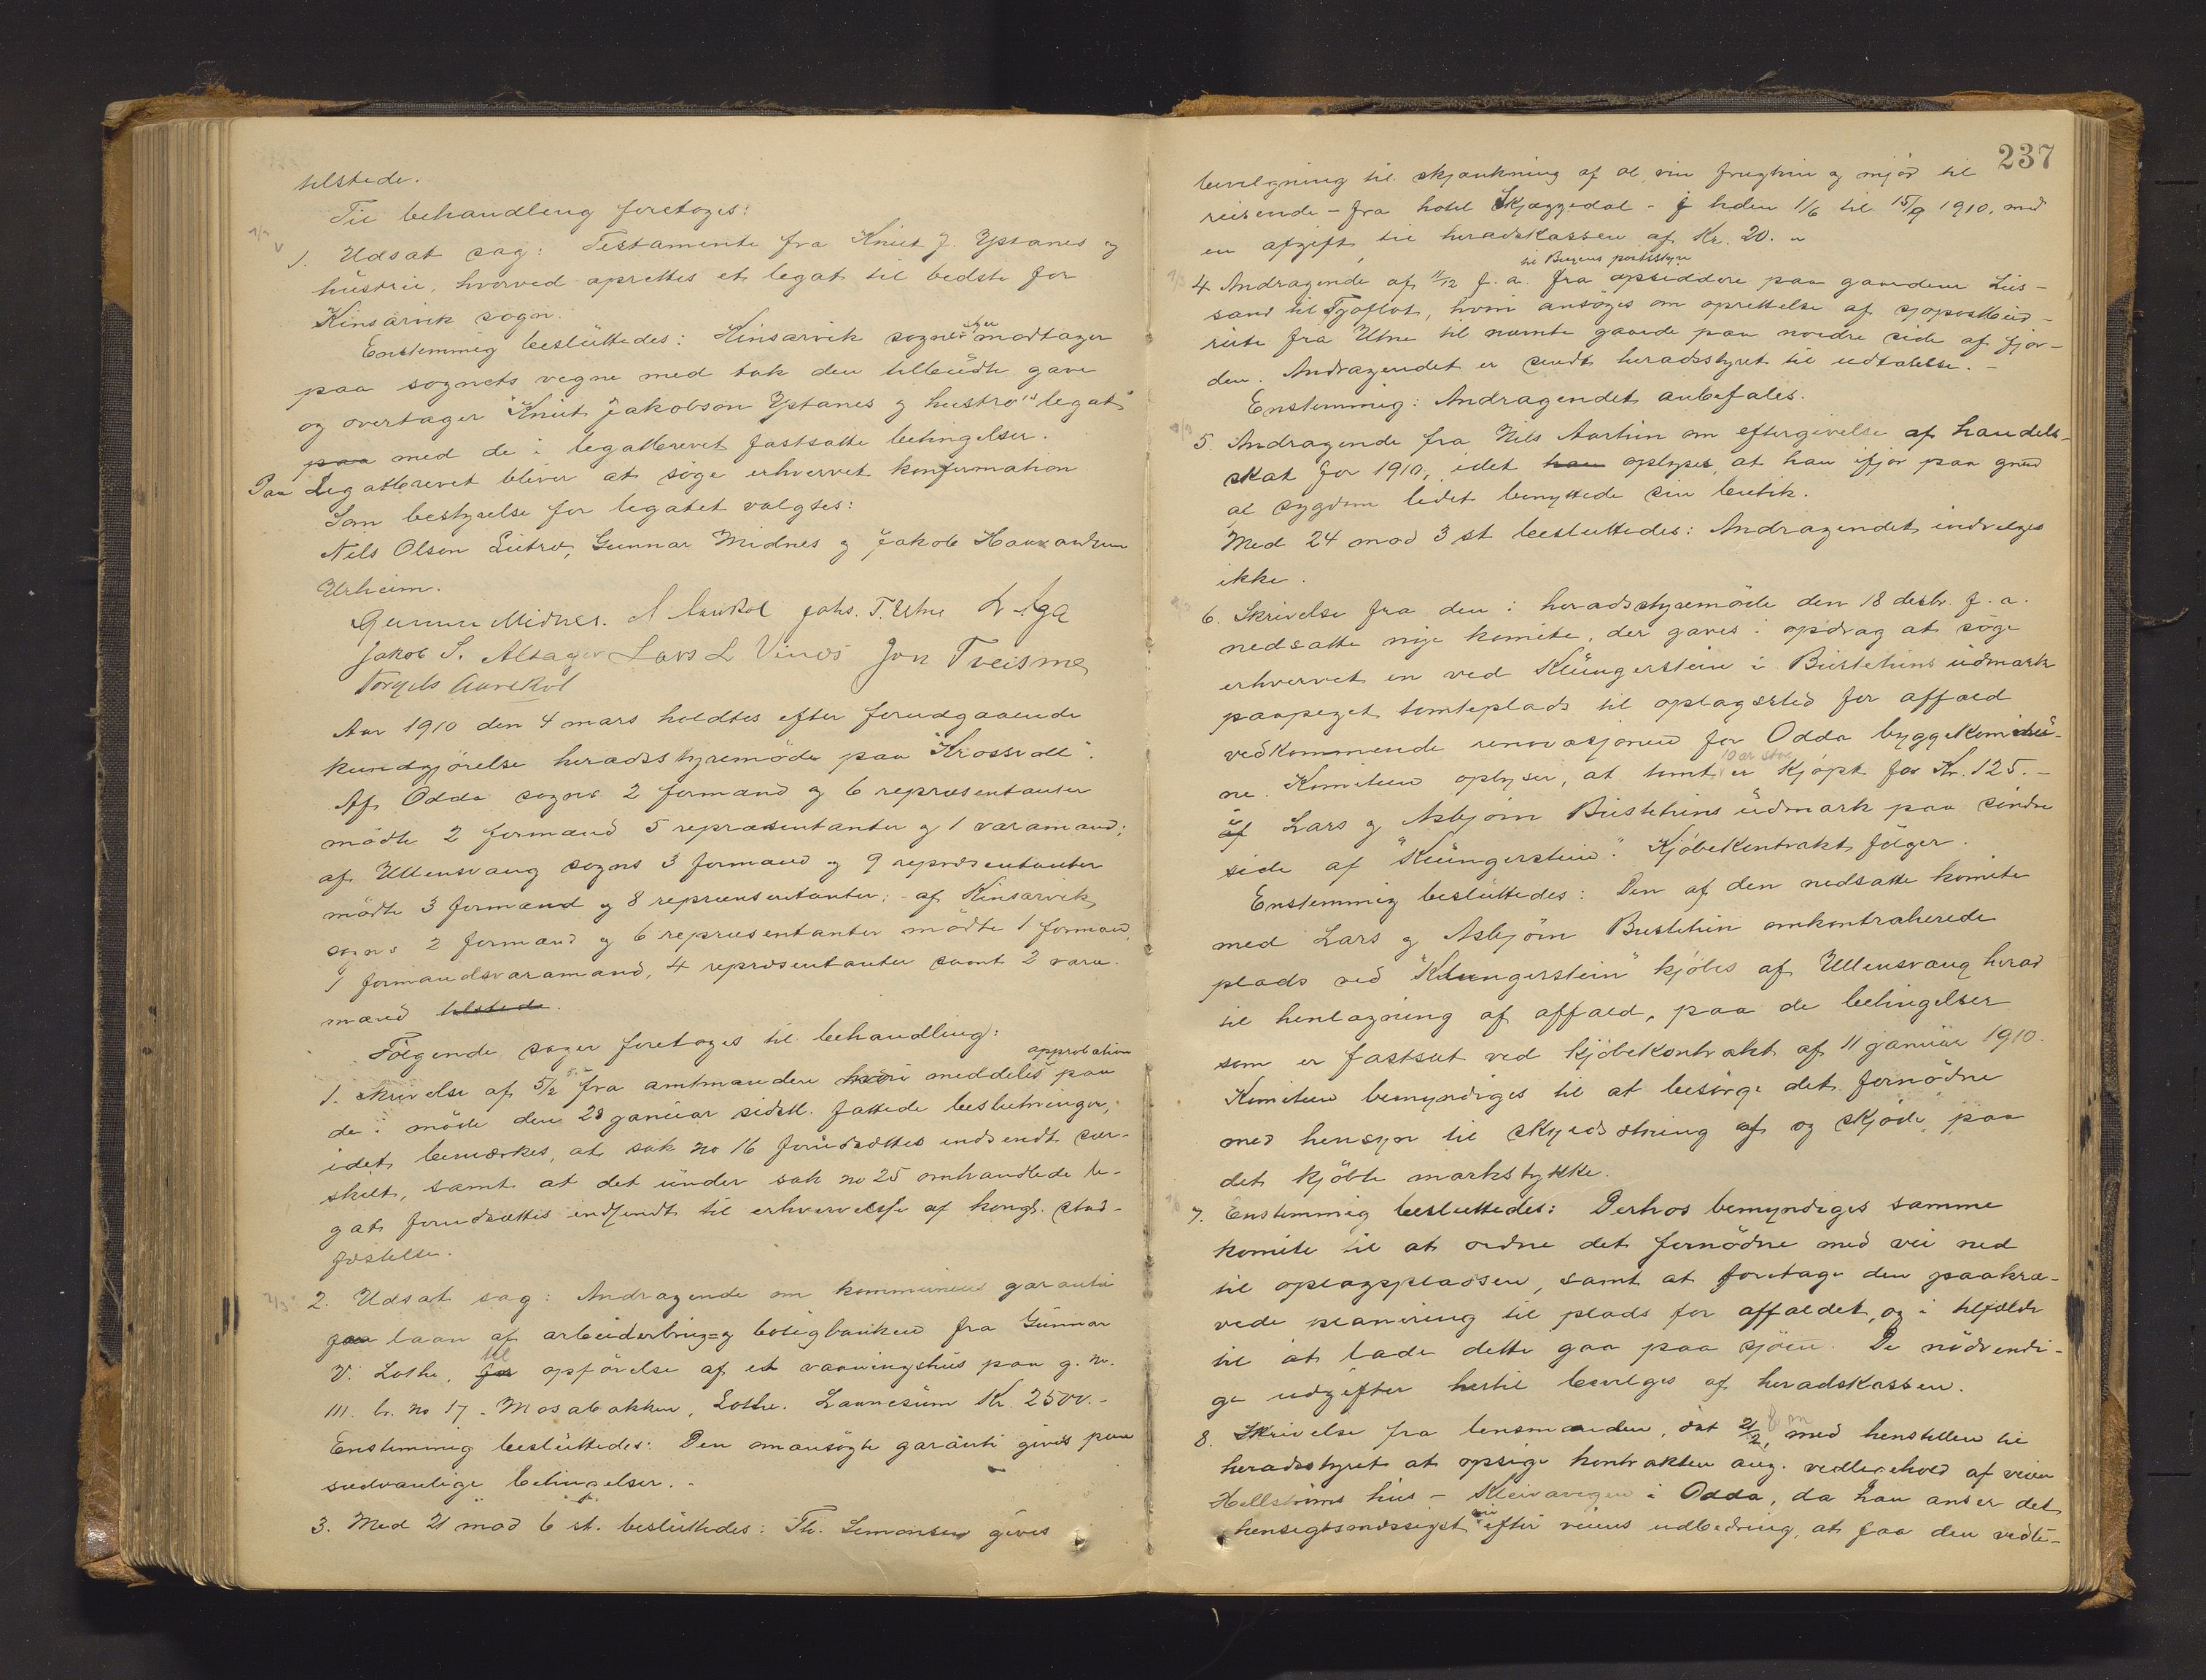 tilstede.
Til behandling foretoges:
1. Udsat sag: Testamente fra Knut J. Ystanes og
hustru, hvorved oprettes et legat til bedste for
Kinsarvik sogn.
Enstemmig besluttedes: Kinsarvik sognestyr modtager
paa sognets vegne med tak den tilbudte gave
og overtager "Knut Jakobson Ystanes og hustro's legat"
paa med de i legatbrevet fastsatte betingelser.
Paa Legatbrevet bliver at söge erhvervet konfirmation
Som bestyrelse for legatet valgtes:
Nels Olsen Lutro, Gunnar Midnes og Jakob
Urheim.
Gunnar Midnes. Johs. T. Utne L Aga
Jakob S. Altager Lars L Vines Jon Tveisme
Torgils Aarekol
Aar 1910 den 4 mars holdtes efter forudgaaende
kundgjörelse heradsstyremöde paa "Krossvoll".
Af Odda sogns 2 formænd og 6 repræsentanter
mödte 2 formænd 5 repræsentanter og 1 varamand;
af Ullensvang sogns 3 formænd og 9 repræsentanter
mödte 3 formænd og 8 repræsentanter; - af Kinsarvik
sogns 2 formænd og 6 repræsentanter mödte 1 formand,
1 formandsvaramand, 4 repræsentanter samt 2 vara-
mænd tilstede.
Fölgende sager foretoges til behandling:
1. Skrivelse af 5/2 fra amtmanden hvori meddeles approbation paa
de i möde den 28 januar sidstl. fattede beslutninger,
idet bemærkes, at sak no 16 forudsættes indsendt sær-
skilt, samt at det under sak no 25 omhandlede le-
gat forudsættes indsendt til erhvervelse af kongl. stad-
fæstelse.
2. Udsat sag: Andragende om kommunens garanti
for laan af arbeiderbrug- og boligbanken fra Gunnar
V. Lothe, for til opförelse af et vaaningshus paa g. no.
111. br. no 17 - Mosabakken, Lothe. Laanesum Kr. 2500.-
Enstemmig besluttedes: Den omansögte garanti gives paa
sedvanlige betingelser. -
3. Med 21 mod 6 st. besluttedes: Th. Simonsen gives
237
bevilgning til skjænkning af öl, vin frugtvin og mjöd til
reisende - fra hotel Skjæggedal - i tiden 1/6 til 15/9 1910, med
en afgift til heradskassen af Kr. 20. "
4 Andragende af 11/12 f. a. til Bergens poststyre fra opsiddere paa gaardene Lus-
sand til Tjoflot, hvori ansöges om oprettelse af sjöpostbud-
rute fra Utne til nævnte gaarde paa nordre side af fjor-
den. Andragendet er sendt heradsstyret til udtalelse. -
Enstemmig: Andragendet anbefales.
5. Andragende fra Nils Aarthun om eftergivelse af handels-
skat for 1910, idet han oplyses, at han ifjor paa grund
af sygdom lidet benyttede sin butik.
Med 24 mod 3 st besluttedes: Andragendet indvilges
ikke.
6. Skrivelse fra den i heradsstyremöde den 18 desbr. f. a.
nedsatte nye komite, der gaves i opdrag at söge
erhvervet en ved Klungerstein i Bustetuns udmark
paapeget tomteplads til oplagssted for affald
vedkommende renovasjonen for Odda byggekommu-
ne. Komiteen oplyser, at tomt 10 ar stor er kjöpt for Kr. 125.-
af Lars og Asbjörn Bustetuns udmark paa söndre
side af "Klungerstein". Kjöbekontrakt fölger.
Enstemmig besluttedes: Den af den nedsatte komite
med Lars og Asbjörn Bustetun omkontraherede
plads ved "Klungerstein" kjöbes af Ullensvang herad
til henlægning af affald, paa de betingelser
som er fastsat ved kjöbekontrakt af 11 januar 1910.
Komiteen bemyndiges til at besörge det fornödne
med hensyn til skyldsætning af og skjöde paa
det kjöbte markstykke.
7. Enstemmig besluttedes: Derhos bemyndiges samme
komite til at ordne det fornödne med vei ned
til oplagspladsen, samt at foretage den paakræ-
vede planering til plads for affaldet, og i tilfælde
til at lade dette gaa paa sjöen. De nödvendi-
ge udgifter hertil bevilges af heradskassen.
8. Skrivelse fra lensmanden, dat 21/2, med henstillen til
heradsstyret at opsige kontrakten ang. vedligehold af veien
Hellströms hus - Kleivavegen i Odda, da han anser det
hensigtsmæssigst efter veiens udbedring, at faa den vedli-